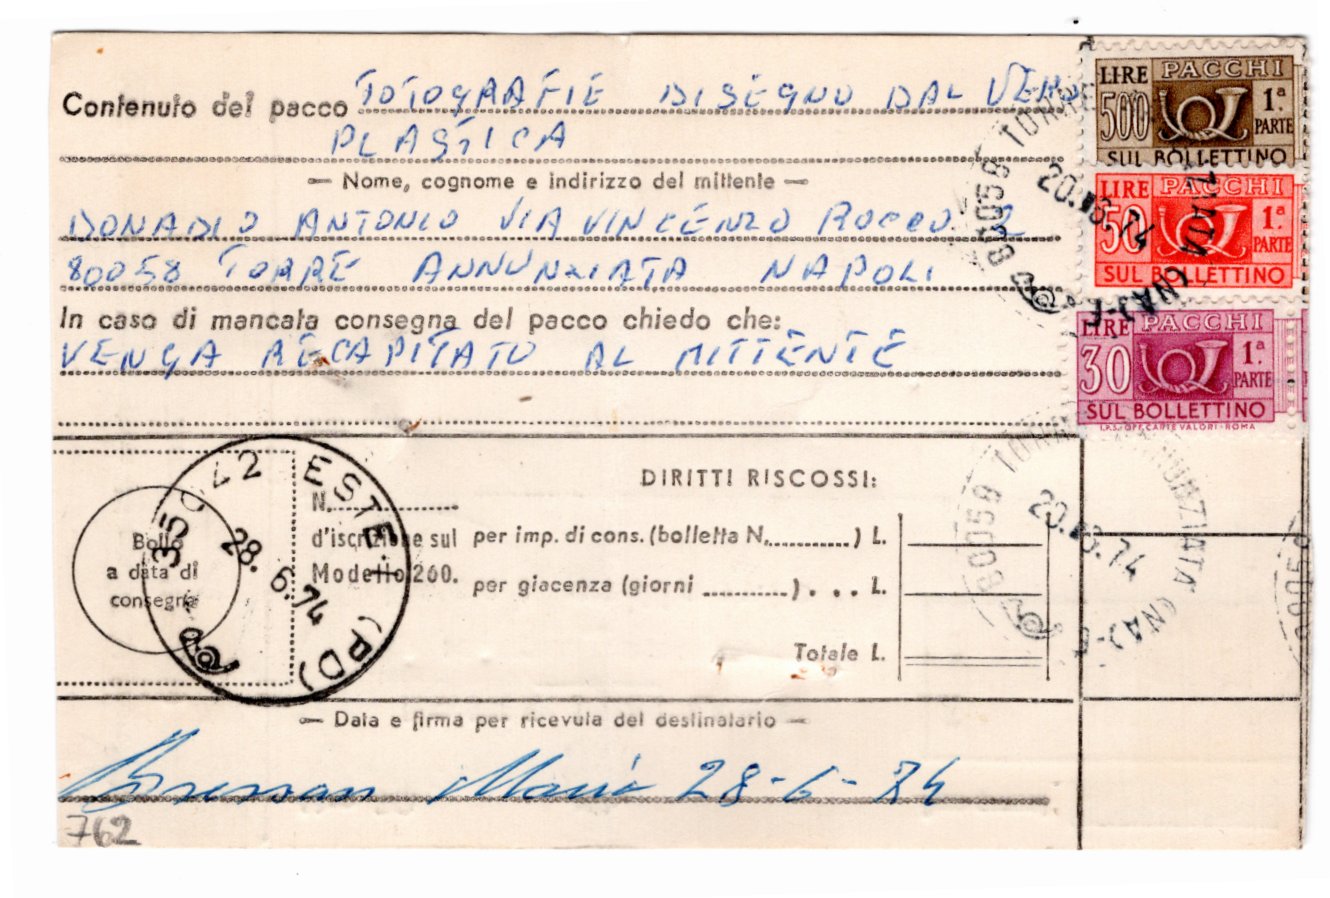 Contenuto del pacco FOTOGRAFIE DISEGNO DAL VERO
PLASTICA
Nome, cognome e indirizzo del mittente
DONADIO ANTONIO VIA VINCENZO ROCCO 2
80058 TORRE ANNUNZIATA NAPOLI
In caso di mancata consegna del pacco chiedo che:
VENGA RECAPITATO AL MITTENTE
LIRE PACCHI
500 1.ª
PARTE
SUL BOLLETTINO
LIRE PACCHI
50 1.ª
PARTE
SUL BOLLETTINO
LIRE PACCHI
30 1.ª
PARTE
SUL BOLLETTINO
I.P.S. OFF. CARTE VALORI - ROMA
80058 TORRE ANNUNZIATA (NA)-E
20.6.74
DIRITTI RISCOSSI:
N.
d'iscrizione sul
Modello 260.
per imp. di cons. (bolletta N. ) L.
per giacenza (giorni ) . . . L.
Totale L.
Bollo
a data di
consegna
35042 ESTE (PD)
28.6.74
80058 TORRE ANNUNZIATA (NA)-E
20.6.74
Data e firma per ricevuta del destinatario
Bressan Maria 28-6-74
762